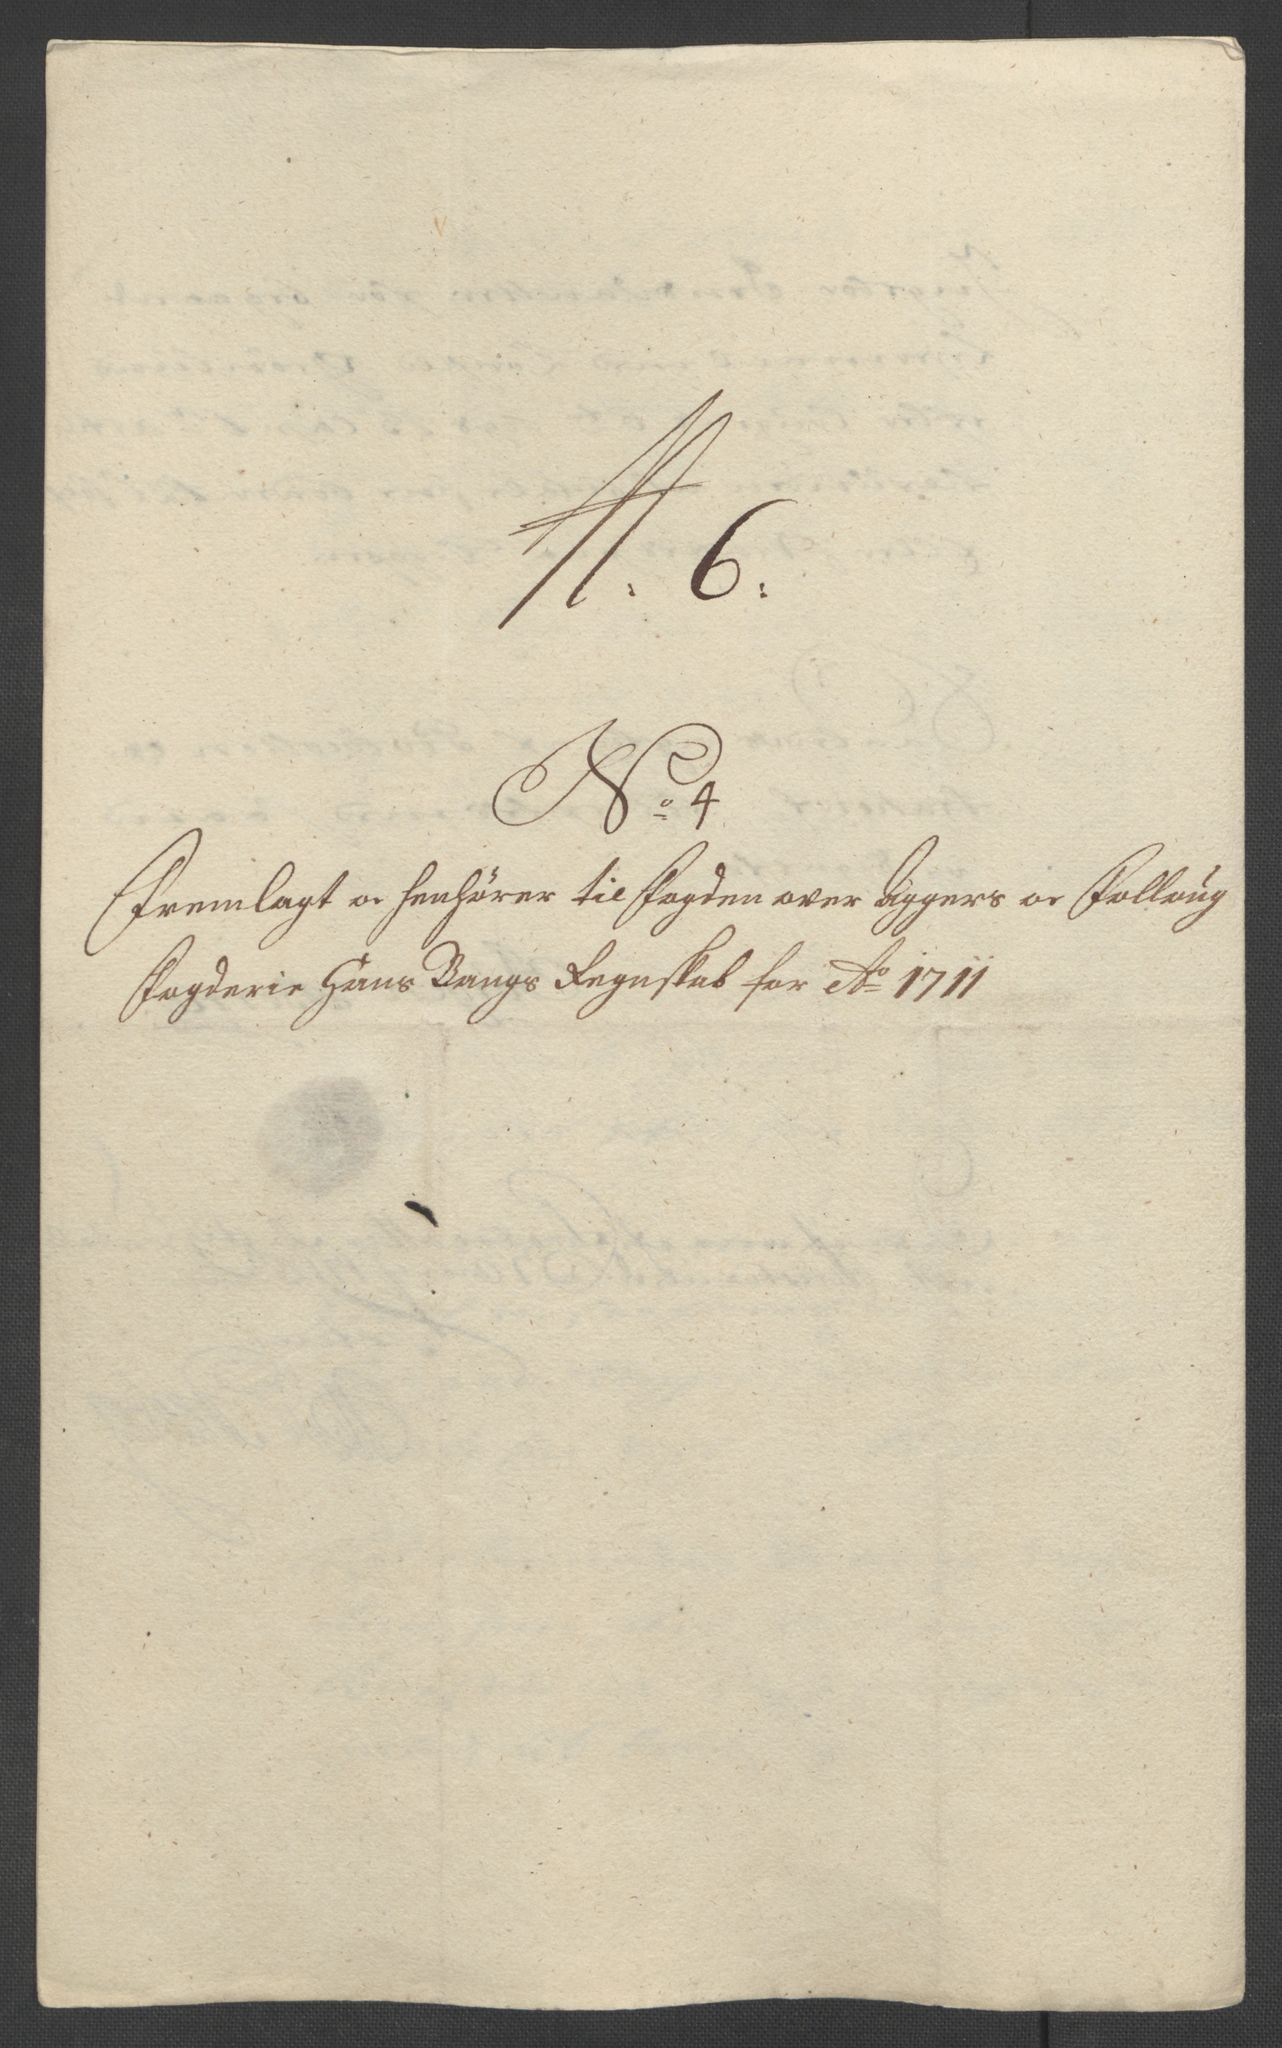 A. 6.
No 4
Fremlagt oc henhörer til Fogden over Aggers oc Folloug
Fogderie Hans Bangs Regnskab for Ao 1711